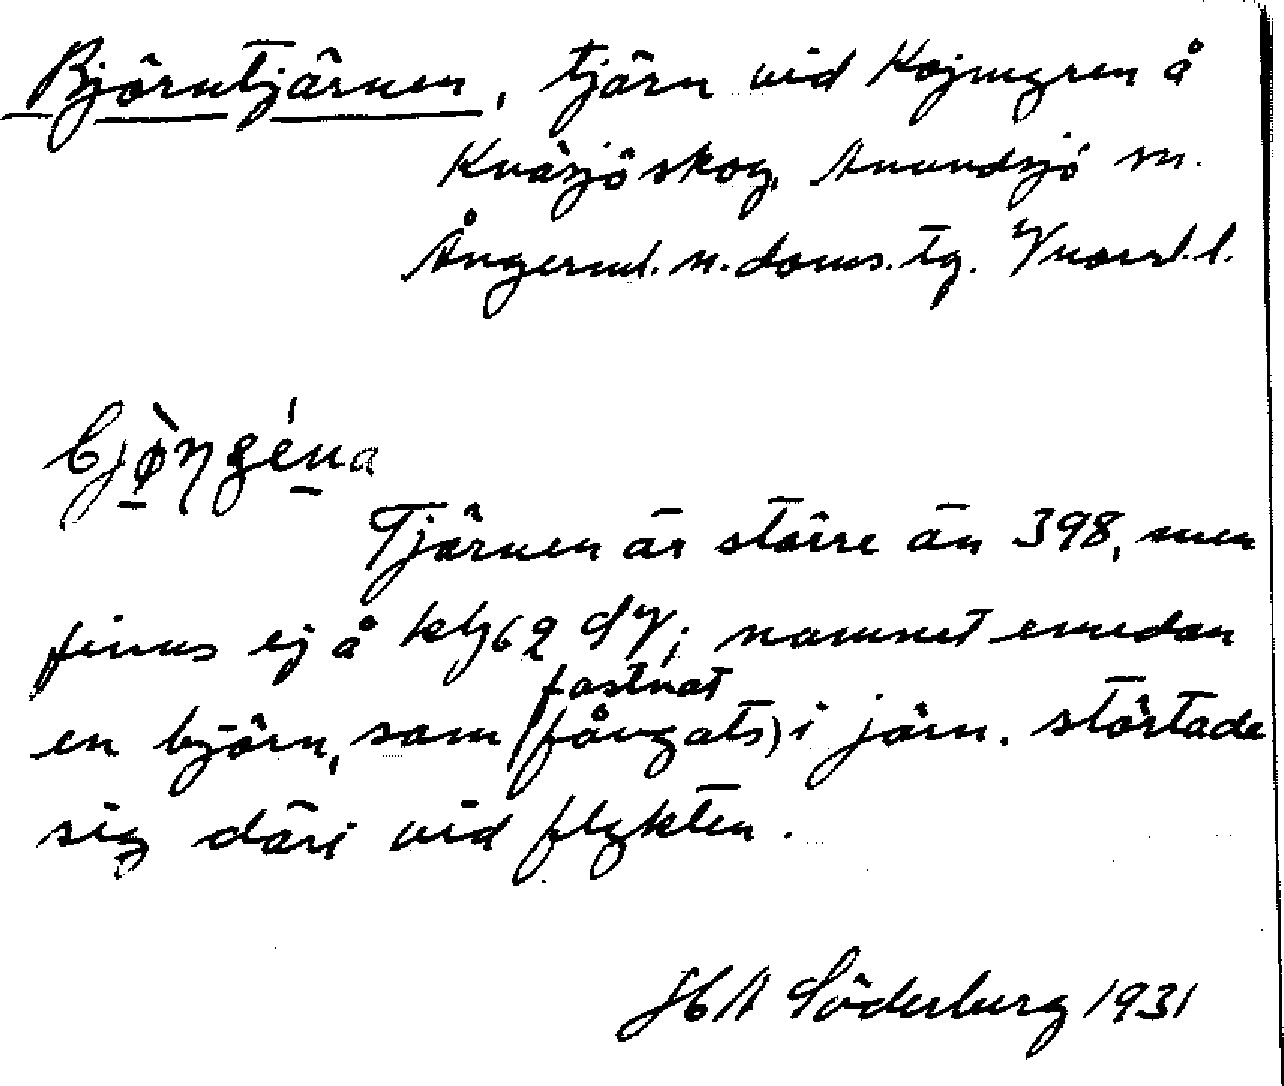 Björntjärnen, tjärn vid Kojmyren å
Kväsjö skog, Anundsjö sn.
Ångerml. n. doms. tg. Vnorrl. l.
Tjärnen är större än 398, men
finns ej å kbl 62 SV; namnet emedan
fastnat
en björn, som (fångats) i järn. störtade
sig däri vid flykten.
HA Söderberg 1931